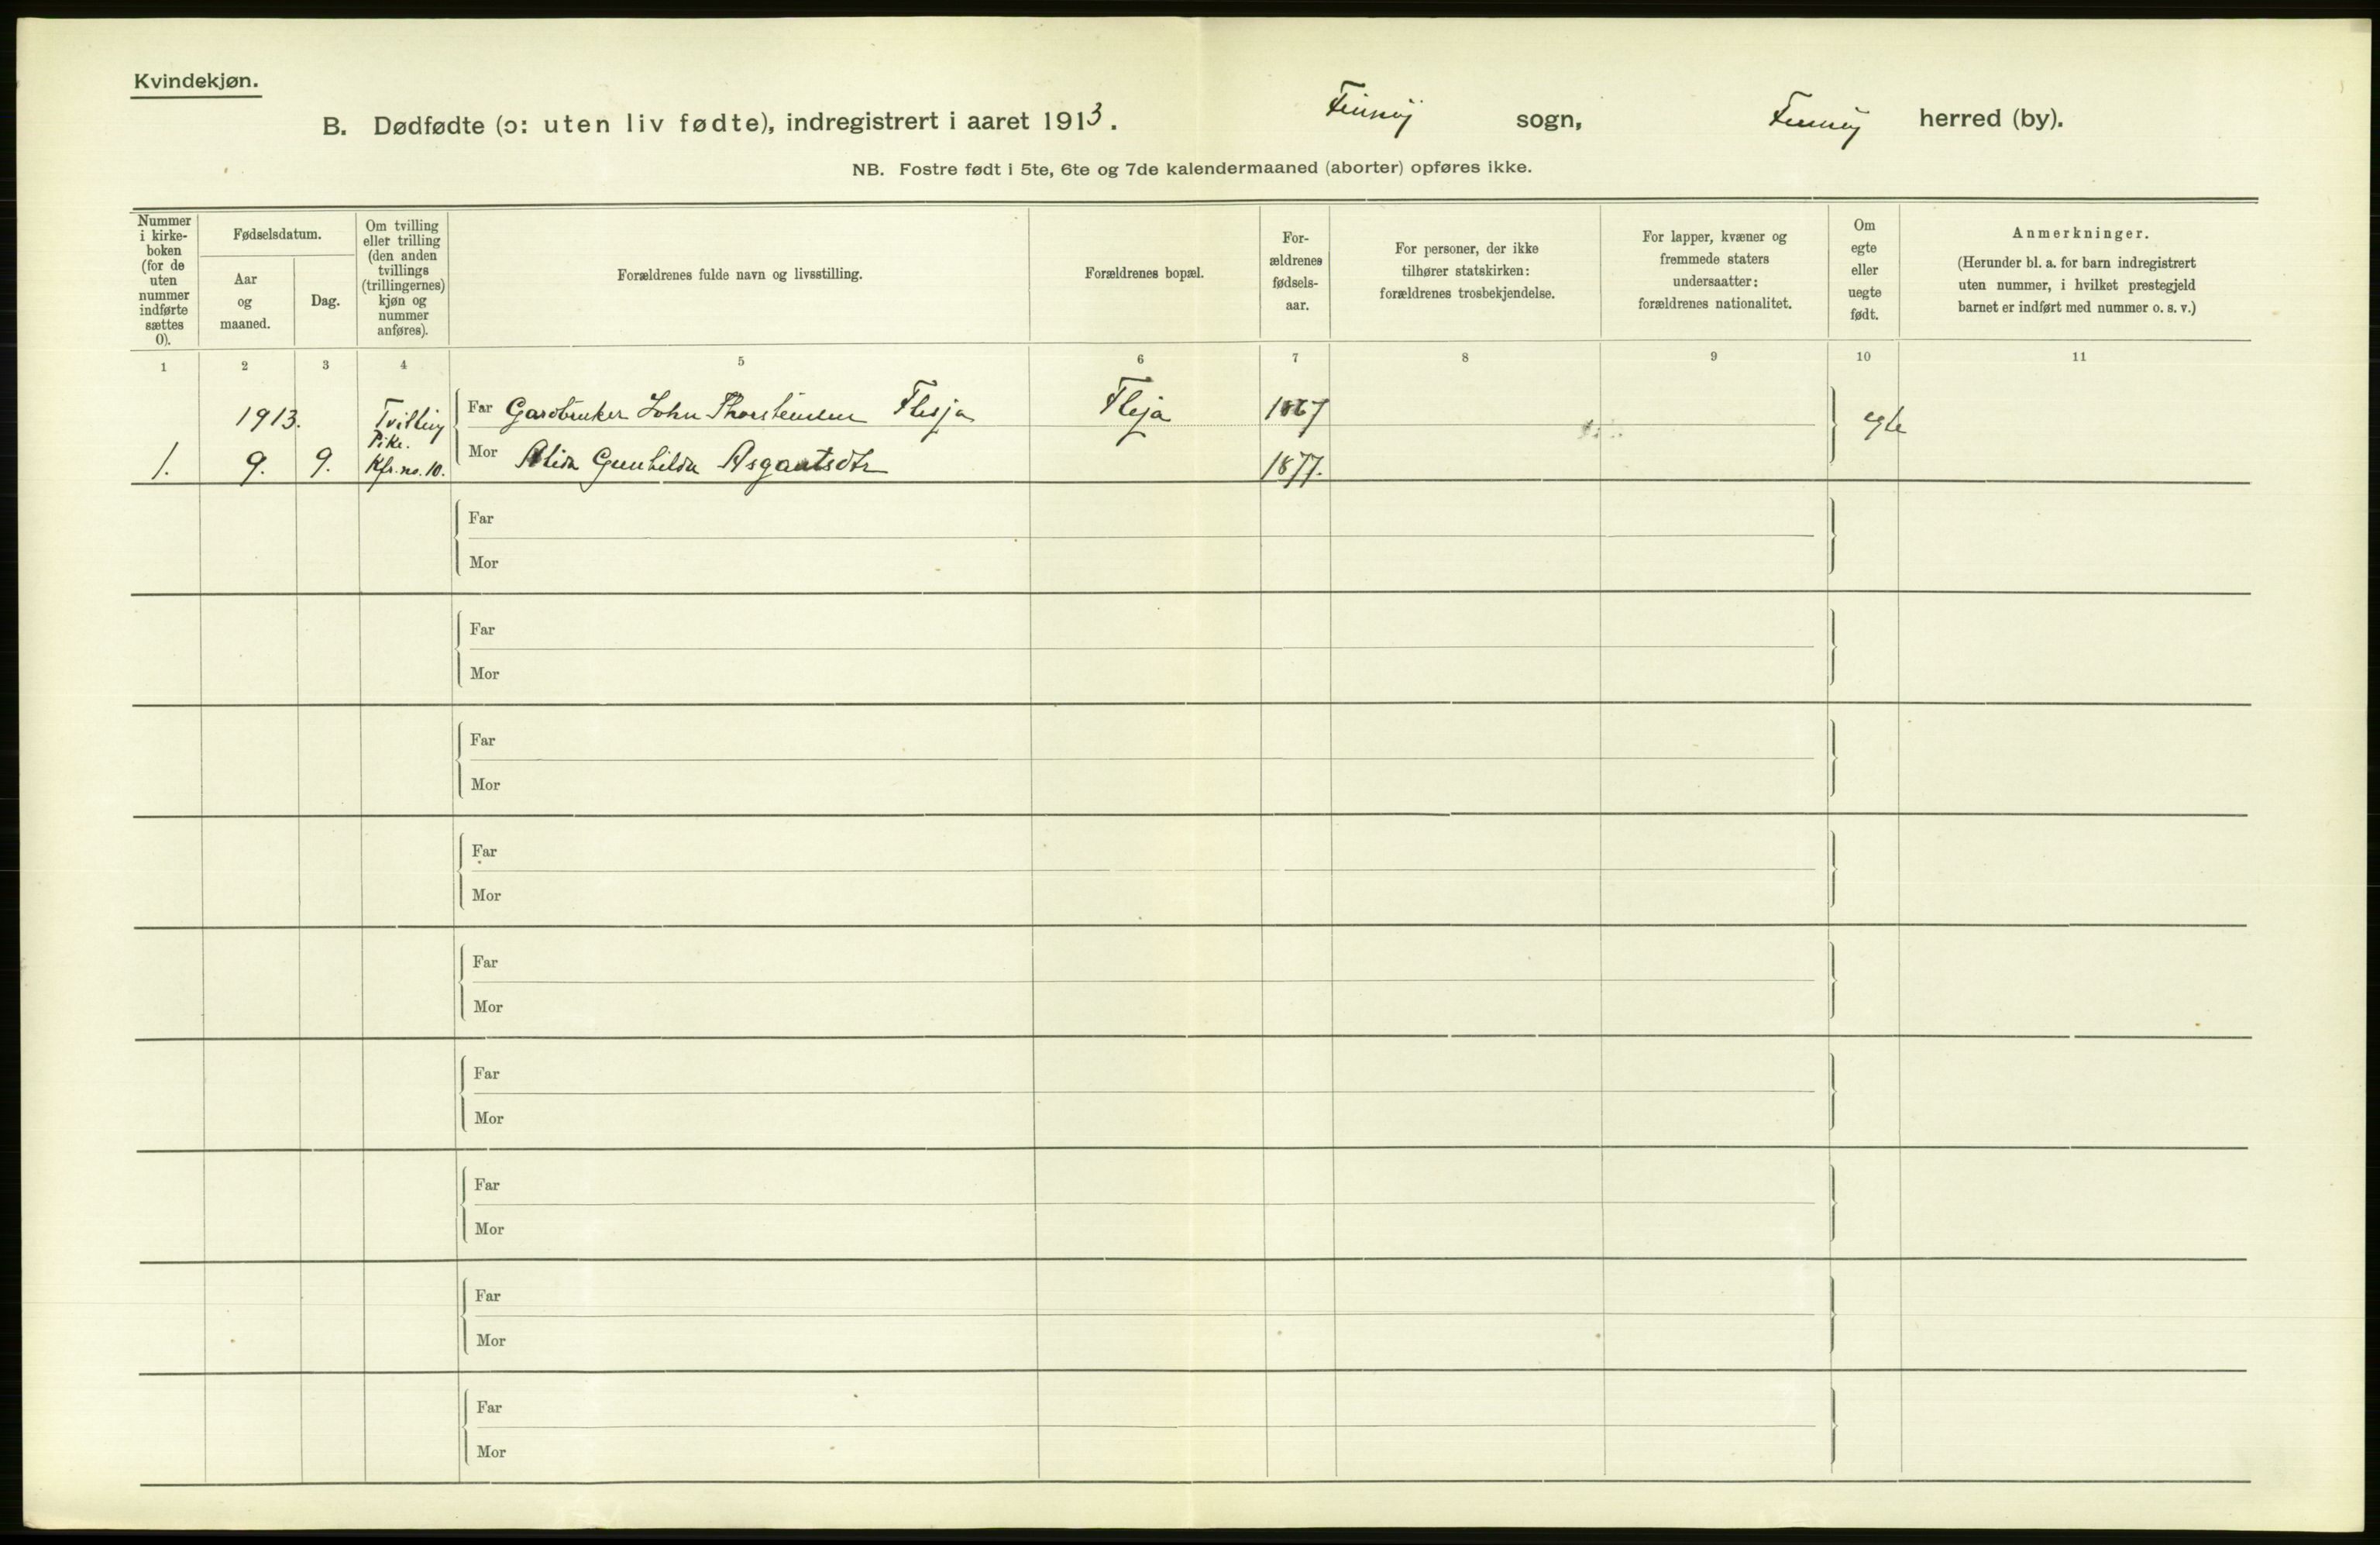 Kvindekjøn.
B. Dødfødte (ɔ: uten liv fødte), indregistrert i aaret 1913. Finnøy sogn, Finnøy herred (by).
NB. Fostre født i 5te, 6te og 7de kalendermaaned (aborter) opføres ikke.
Nummer
i kirke-
boken
(for de
uten
nummer
indførte
sættes
0).
Fødselsdatum.
Aar
og
maaned.
Dag.
Om tvilling
eller trilling
(den anden
tvillings
(trillingernes)
kjøn og
nummer
anføres).
Forældrenes fulde navn og livsstilling.
Forældrenes bopæl.
For-
ældrenes
fødsels-
aar.
For personer, der ikke
tilhører statskirken:
forældrenes trosbekjendelse.
For lapper, kvæner og
fremmede staters
undersaatter:
forældrenes nationalitet.
Om
egte
eller
uegte
født.
Anmerkninger.
(Herunder bl. a. for barn indregistrert
uten nummer, i hvilket prestegjeld
barnet er indført med nummer o. s. v.)
1 2 3 4 5 6 7 8 9 10 11
1913. Tvilling Far Gardbruker John Thorsteinsen Flesja Flesja 1867 egte
Pike.
1. 9. 9. Kfr. no. 10. Mor Alida Gunhilda Asgautsdtr 1877.
Far
Mor
Far
Mor
Far
Mor
Far
Mor
Far
Mor
Far
Mor
Far
Mor
Far
Mor
Far
Mor